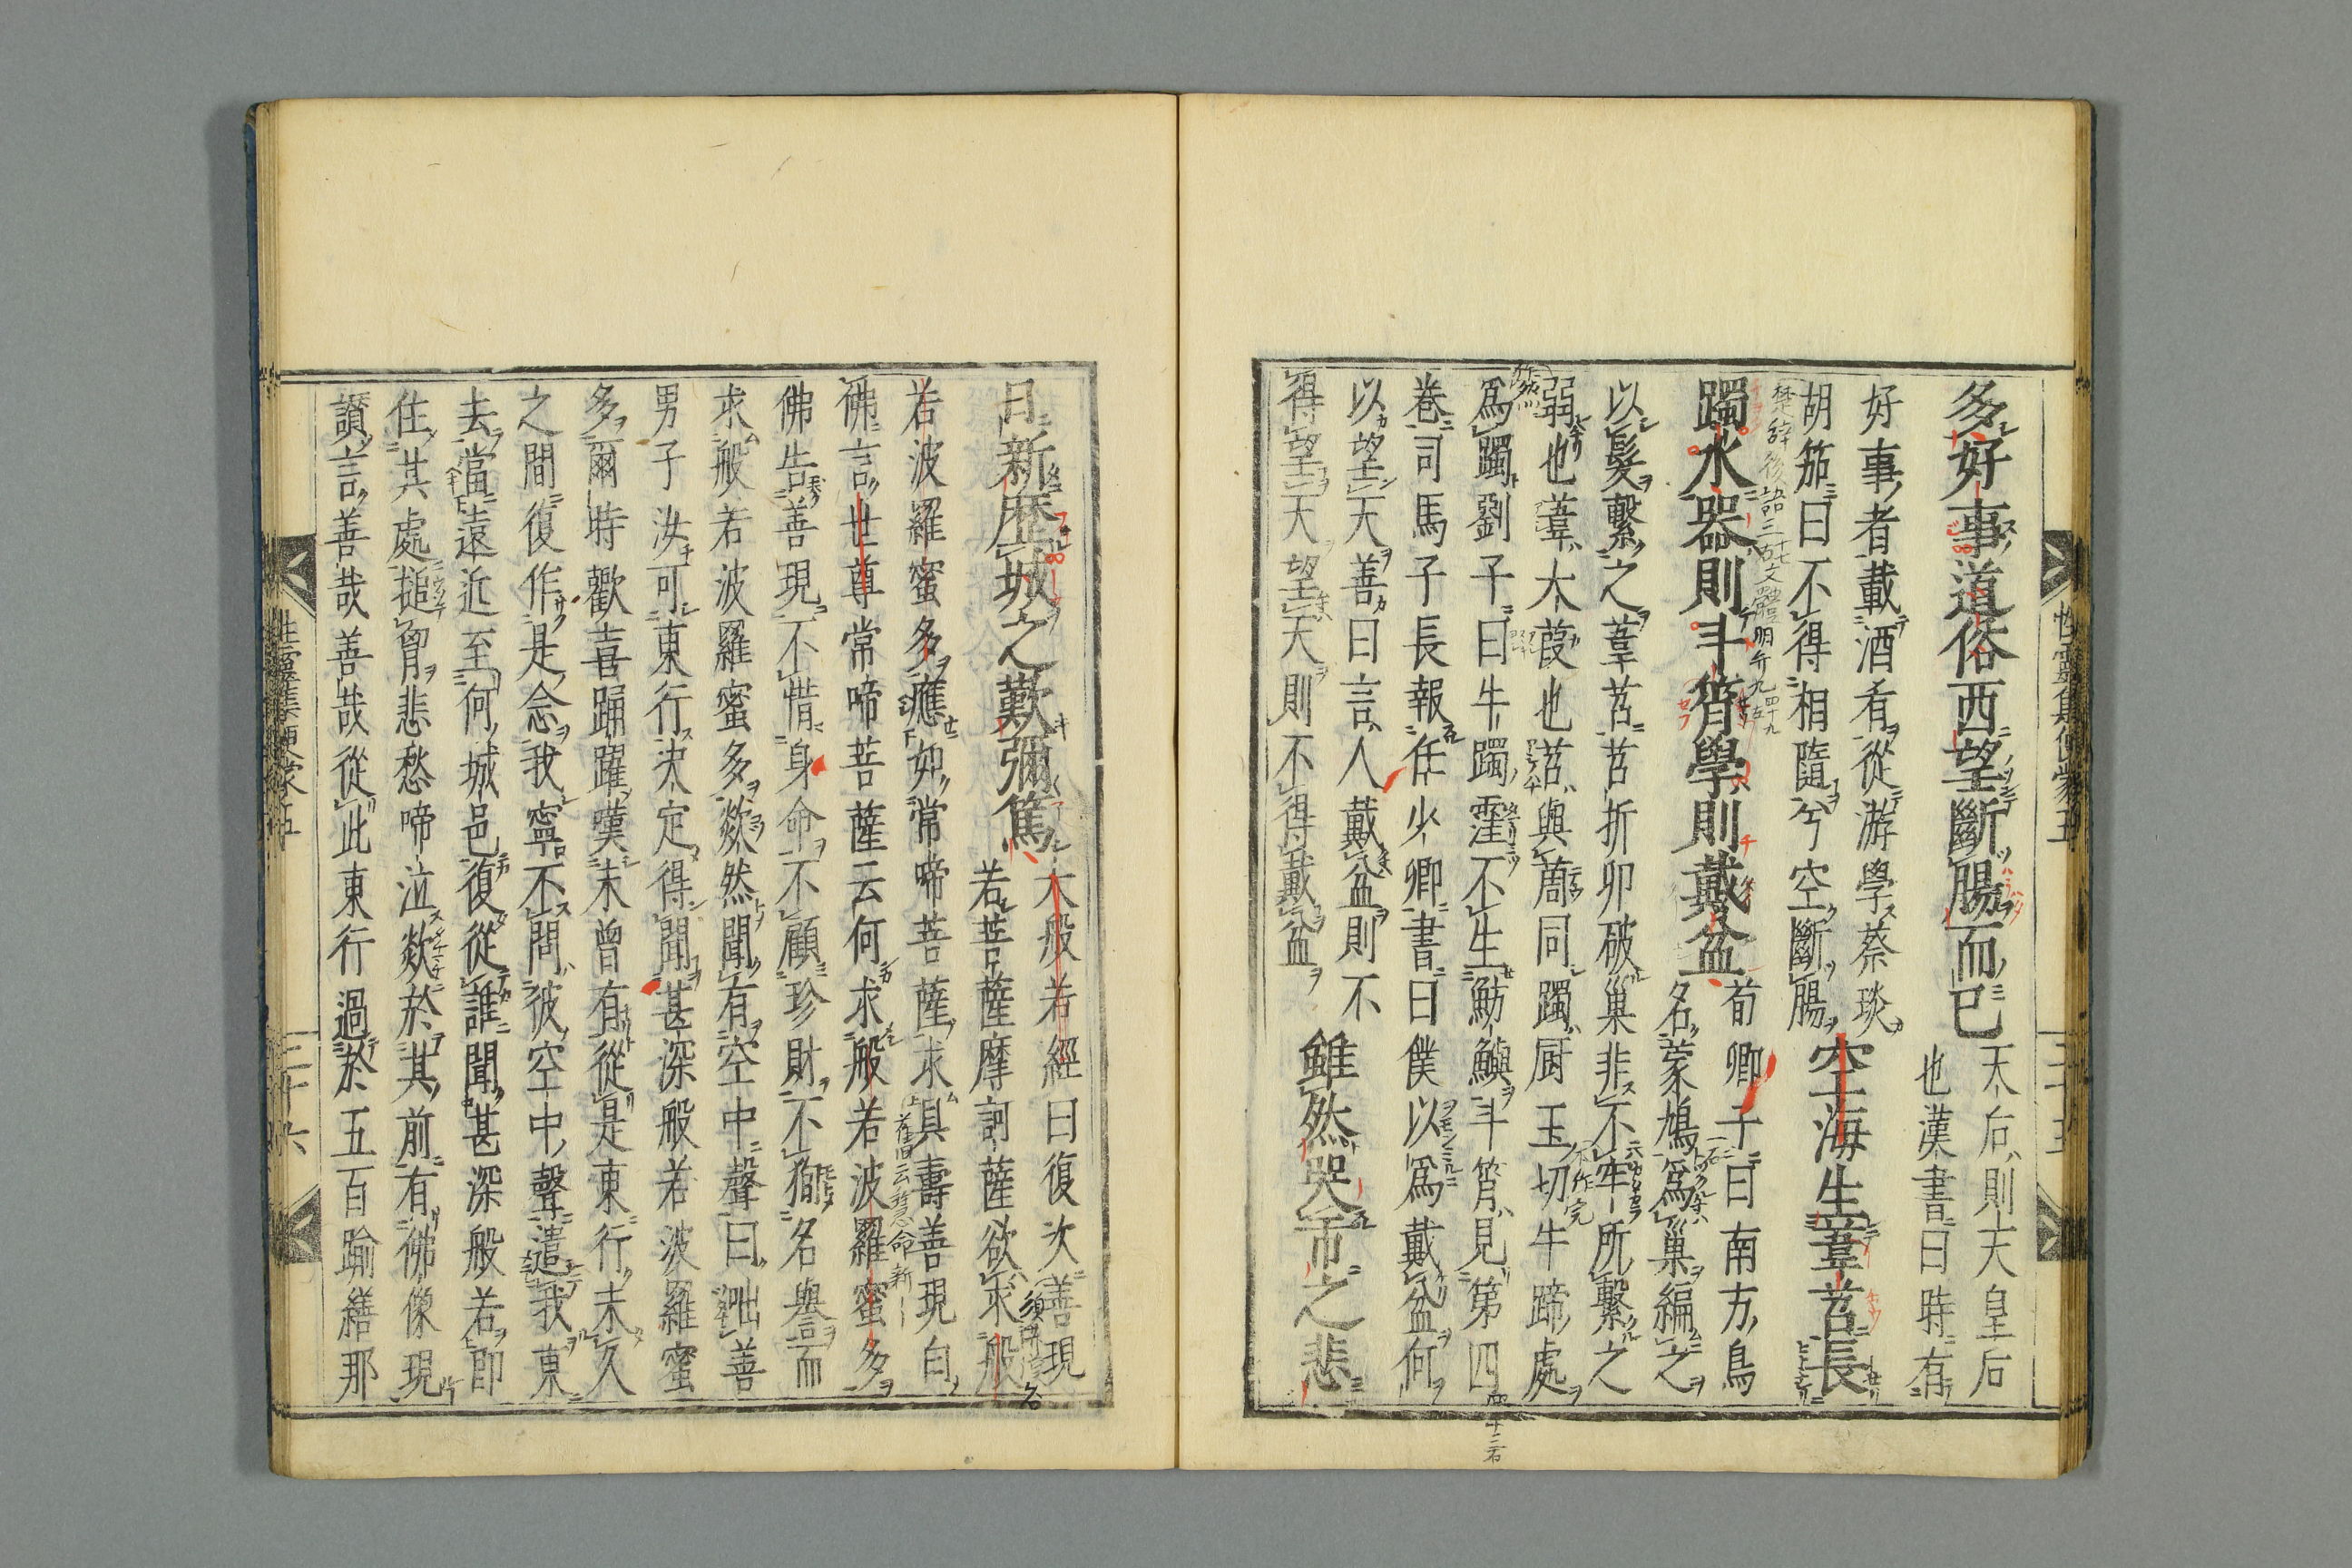 多好事道俗西望斷腸而已
天后則天皇后
也漢書曰時有
好事者載酒肴從游學蔡琰
胡笳曰不得相隨兮空斷腸
空海生葦苕長
躅水器則斗筲學則戴盆
荀卿子曰南方鳥
名蒙鳩爲巢編之
以髮繫之葦苕苕折卵破巢非不牢所繫之
弱也葦大葭也苕與䓝同躅厨玉切牛蹄處
爲躅劉子曰牛躅窪不生魴鱮斗筲見第四
卷司馬子長報任少卿書曰僕以爲戴盆何
以望天善曰言人戴盆則不
得望天望天則不得戴盆
雖然哭市之悲
日新歷城之歎彌篤
大般若經曰復次善現
若菩薩摩訶薩欲求般
若波羅蜜多應如常啼菩薩求具壽善現白
佛言世尊常啼菩薩云何求般若波羅蜜多
佛告善現不惜身命不顧珍財不徇名譽而
求般若波羅蜜多欻然聞有空中聲曰咄善
男子汝可東行決定得聞甚深般若波羅蜜
多爾時歡喜踊躍嘆未曾有從是東行未久
之間復作是念我寧不問彼空中聲遣我東
去當遠近至何城邑復從誰聞甚深般若即
住其處搥胷悲愁啼泣欻於其前有佛像現
讃言善哉善哉從此東行過於五百踰繕那
性靈集便蒙五
三十五
性靈集便蒙五
三十六